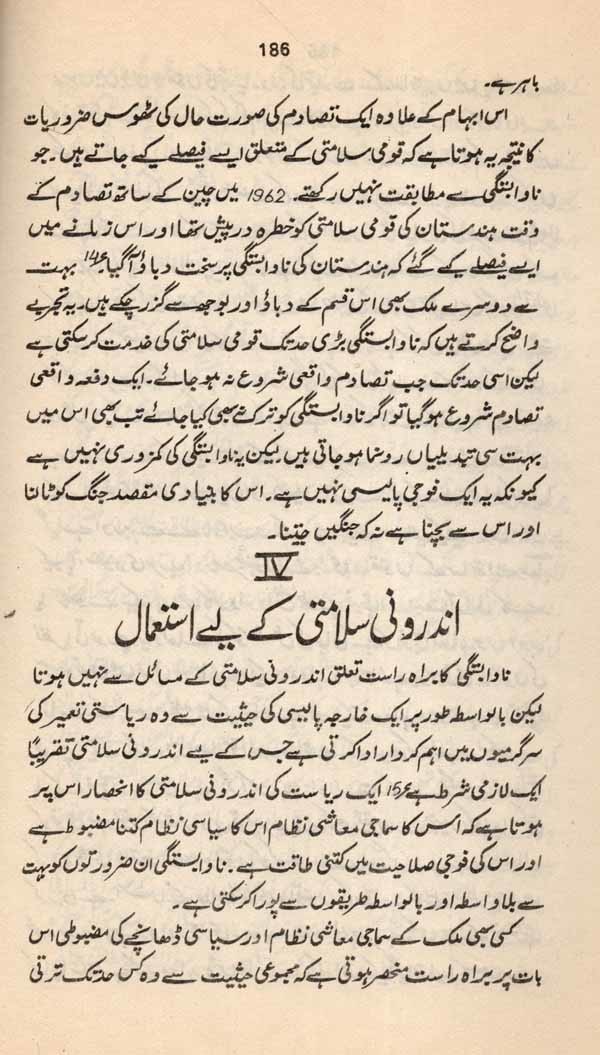 186
باہر ہے۔
اس ابہام کے علاوہ ایک تصادم کی صورت حال کی ٹھوس ضروریات
کا نتیجہ یہ ہوتا ہے کہ قومی سلامتی کے متعلق ایسے فیصلے کیے جاتے ہیں۔ جو
ناوابستگی سے مطابقت نہیں رکھتے۔ 1962 میں چین کے ساتھ تصادم کے
وقت ہندستان کی قومی سلامتی کو خطرہ درپیش تھا اور اس زمانے میں
ایسے فیصلے کیے گئے کہ ہندستان کی ناوابستگی پر سخت دباؤ آگیا۔ بہت
سے دوسرے ملک بھی اس قسم کے دباؤ اور بوجھ سے گزر چکے ہیں۔ یہ تجربے
واضح کرتے ہیں کہ ناوابستگی بڑی حد تک قومی سلامتی کی خدمت کرسکتی ہے
لیکن اسی حد تک جب تصادم واقعی شروع نہ ہو جائے۔ ایک دفعہ واقعی
تصادم شروع ہوگیا تو اگر ناوابستگی کو ترک نہ بھی کیا جائے تب بھی اس میں
بہت سی تبدیلیاں رونما ہو جاتی ہیں لیکن یہ ناوابستگی کی کمزوری نہیں ہے
کیونکہ یہ ایک فوجی پالیسی نہیں ہے۔ اس کا بنیادی مقصد جنگ کو ٹالنا
اور اس سے بچنا ہے نہ کہ جنگیں جیتنا۔
IV
اندرونی سلامتی کے لیے استعمال
ناوابستگی کا براہ راست تعلق اندرونی سلامتی کے مسائل سے نہیں ہوتا
لیکن بالواسطہ طور پر ایک خارجہ پالیسی کی حیثیت سے وہ ریاستی تعمیر کی
سرگرمیوں میں اہم کردار ادا کرتی ہے جس کے لیے اندرونی سلامتی تقریباً
ایک لازمی شرط ہے۔ ایک ریاست کی اندرونی سلامتی کا انحصار اس پر
ہوتا ہے کہ اس کا سماجی معاشی نظام اس کا سیاسی نظام کتنا مضبوط ہے
اور اس کی فوجی صلاحیت میں کتنی طاقت ہے۔ ناوابستگی ان ضرورتوں کو بہت
سے بلاواسطہ اور بالواسطہ طریقوں سے پورا کرسکتی ہے۔
کسی بھی ملک کے سماجی معاشی نظام اور سیاسی ڈھانچے کی مضبوطی اس
بات پر براہ راست منحصر ہوتی ہے کہ مجموعی حیثیت سے وہ کس حد تک ترقی